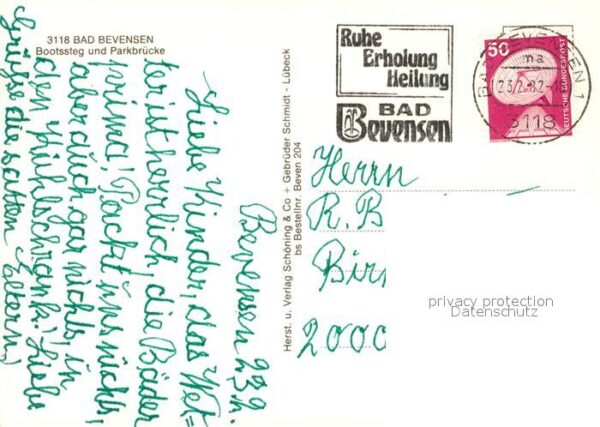 3118 BAD BEVENSEN
Bootssteg und Parkbrücke
Bevensen 23.2.
Liebe Kinder, das Wet=
ter ist herrlich, die Bäder
prima! Packt uns nichts,
aber auch gar nichts, in
den Kühlschrank! Liebe
Grüße die satten Eltern,
Herst. u. Verlag Schöning & Co + Gebrüder Schmidt - Lübeck
bs Bestellnr. Beven 204
Ruhe
Erholung
Heilung
BAD
Bevensen
50
DEUTSCHE BUNDESPOST
BAD BEVENSEN 1
ma
23.2.82
3118
Herrn
R. B
Bir
2000
privacy protection
Datenschutz